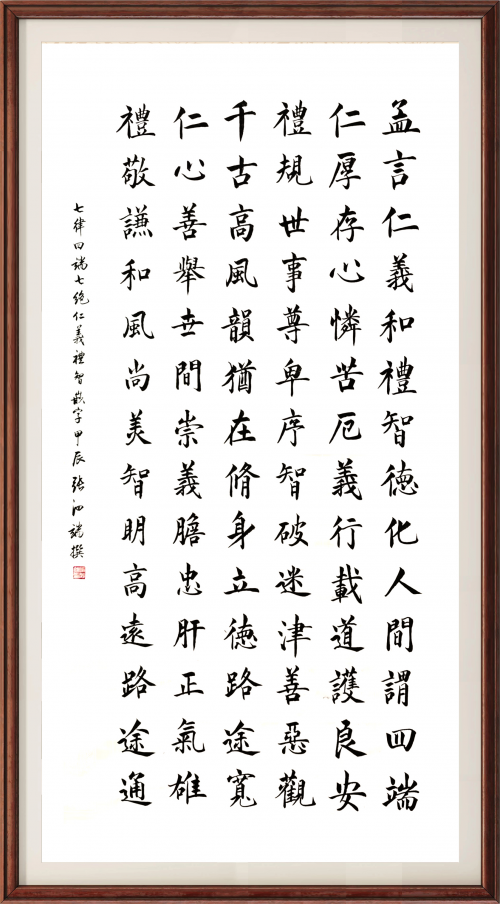 孟言仁義和禮智德化人間謂四端
仁厚存心憐苦厄義行載道護良安
禮規世事尊卑序智破迷津善惡觀
千古高風韻猶在脩身立德路途寬
仁心善舉世間崇義膽忠肝正氣雄
禮敬謙和風尚美智明高遠路途通
七律四端七绝仁義禮智嵌字甲辰張泗端撰